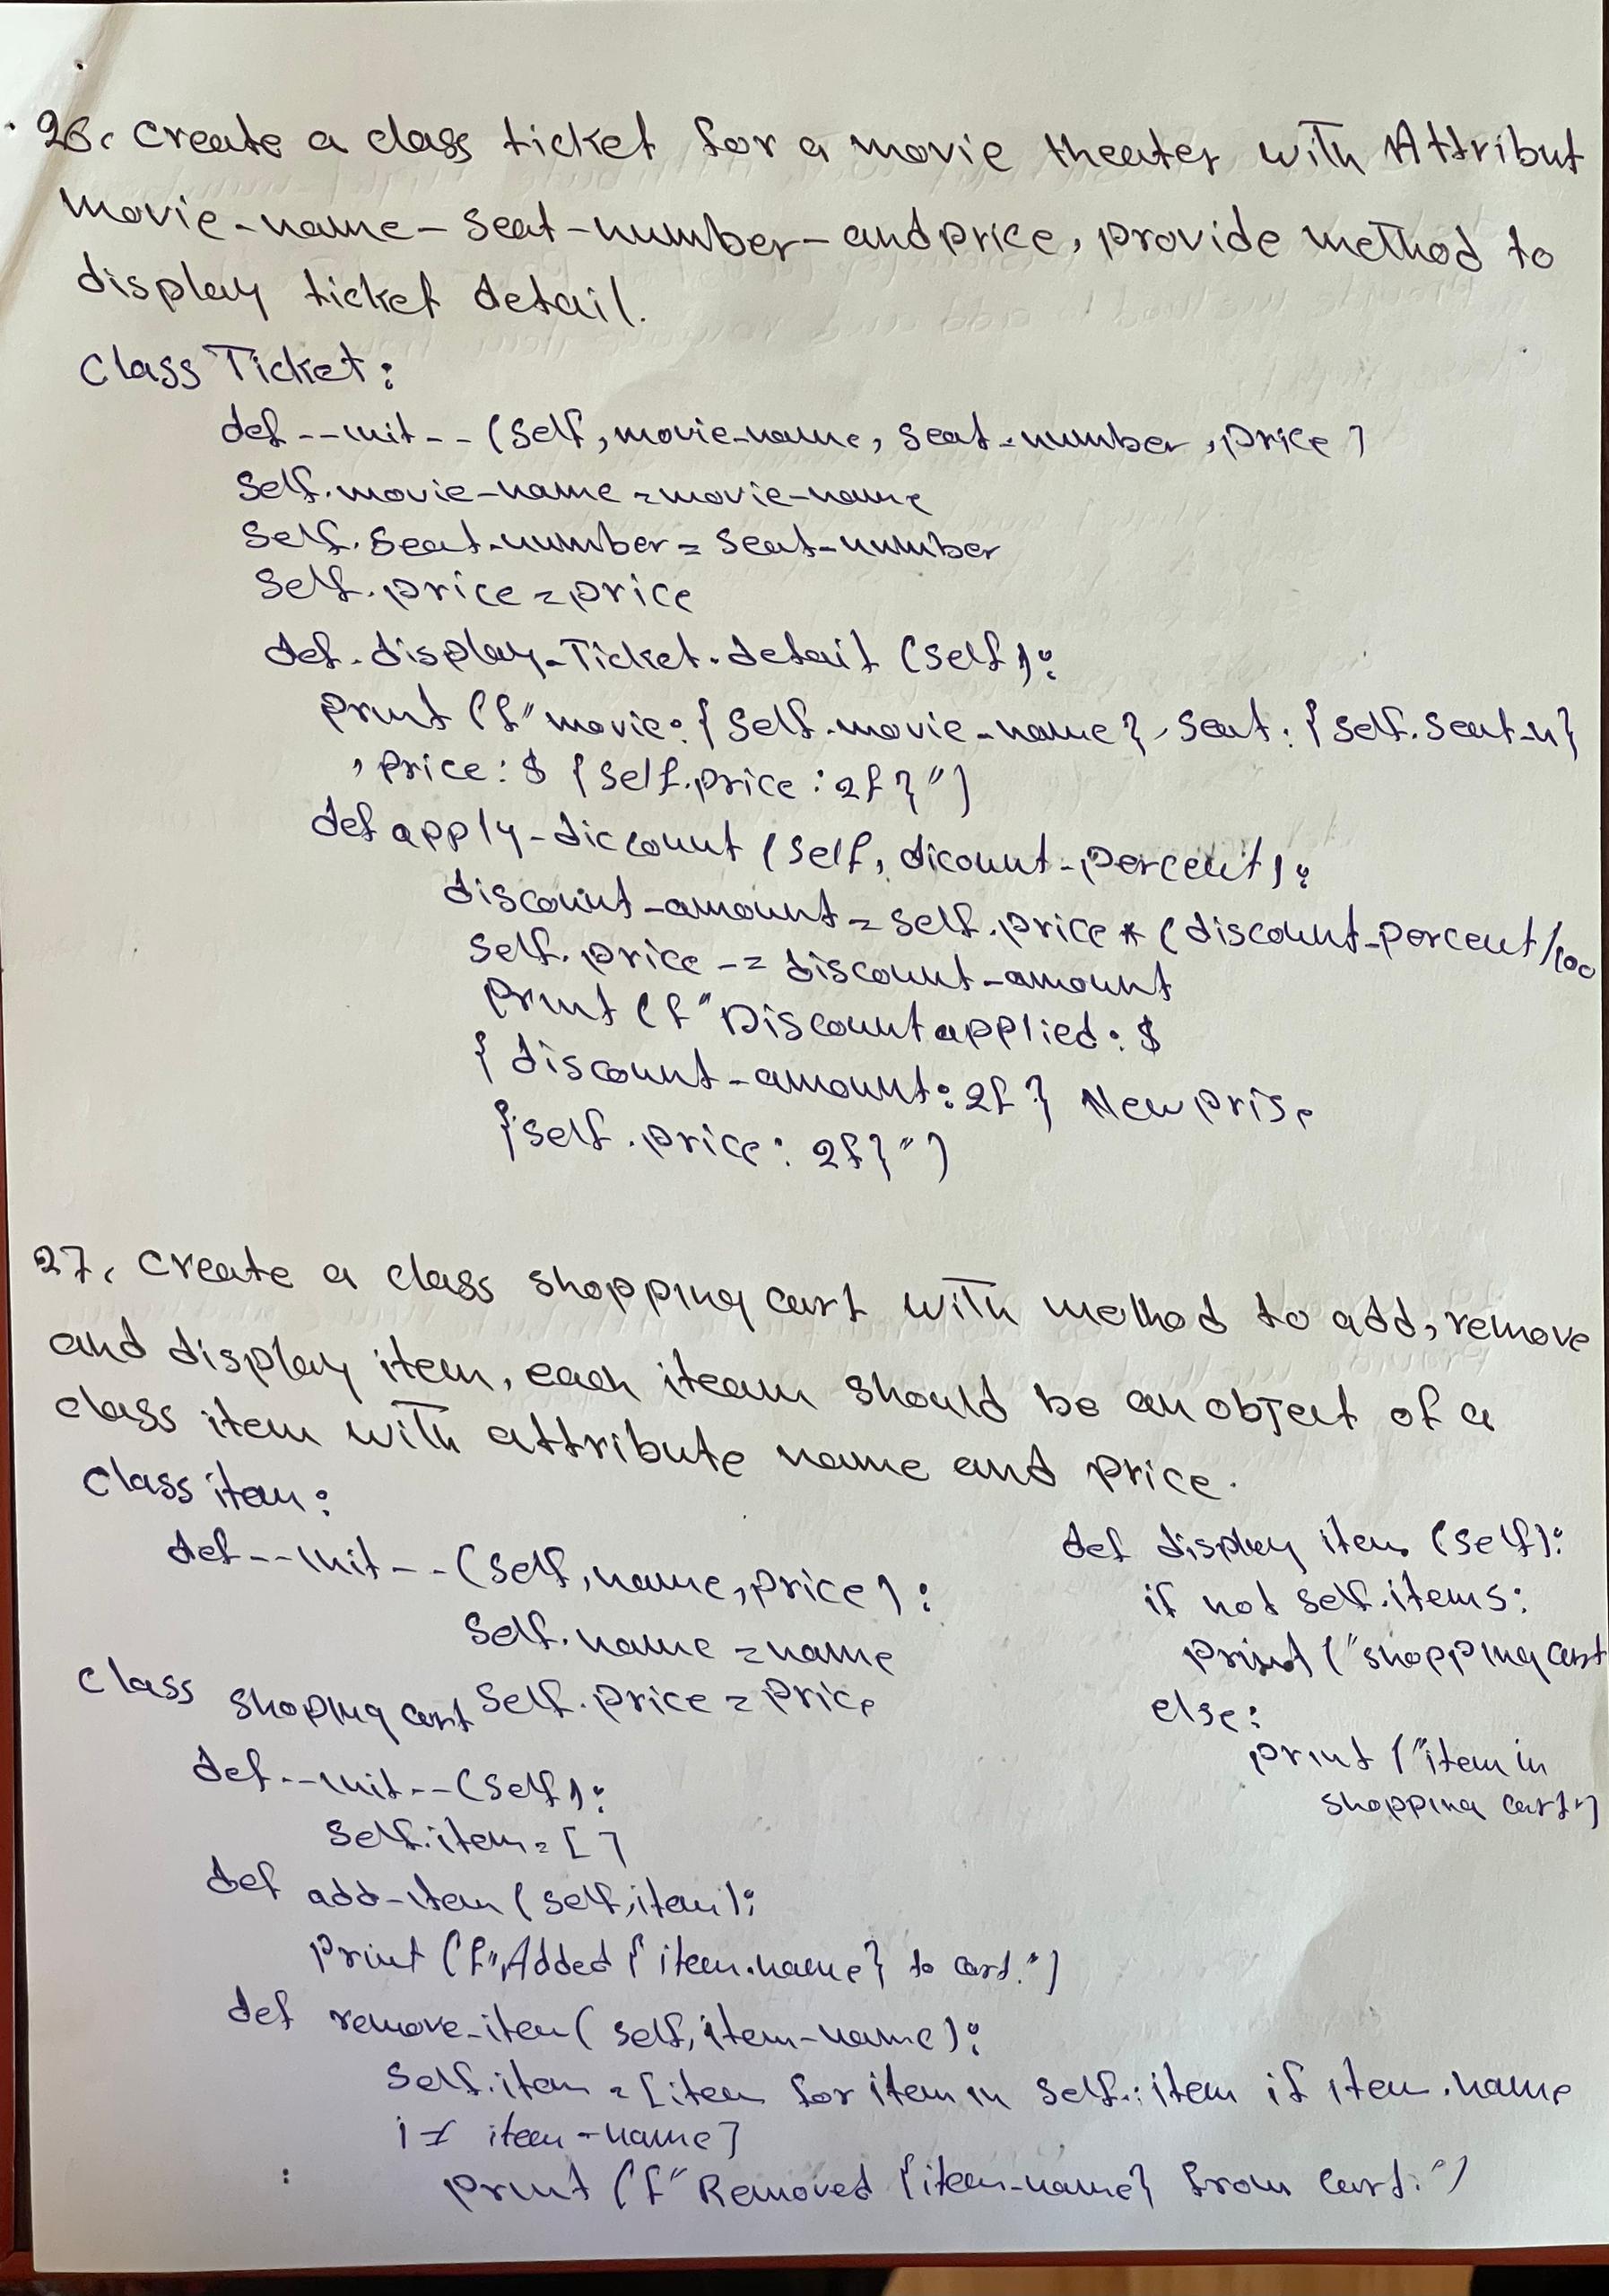 26. Create a class ticket for a movie theater with Attribut
movie-name-seat-number-and price, provide method to
display ticket detail.
Class Ticket:
def --init-- (self, movie-name, seat-number, price)
self.movie-name = movie-name
self.seat-number = seat-number
self.price = price
def.display-Ticket.detail (self):
print (f"movie: {self.movie-name}, seat: {self.seat-n}
, price: $ {self.price: 2f}")
def apply-diccount (self, dicount-percent):
discount-amount = self.price * (discount-percent/100
self.price -= discount-amount
print (f"Discount applied: $
{discount-amount: 2f} New prise
{self.price: 2f}")
27. Create a class shopping cart with method to add, remove
and display item, each iteam should be an object of a
class item with attribute name and price.
Class item:
def --init-- (self, name, price):
self.name = name
self.price = price
Class shoping cart
def --init-- (self):
self.item = []
def add-item (self, item):
print (f"Added {item.name} to cart.")
def remove-item (self, item-name):
self.item = [item for item in self.item if item.name
!= item-name]
print (f"Removed {item-name} from cart.")
def display item (self):
if not self.items:
print ("shopping cart
else:
print ("item in
shopping cart")